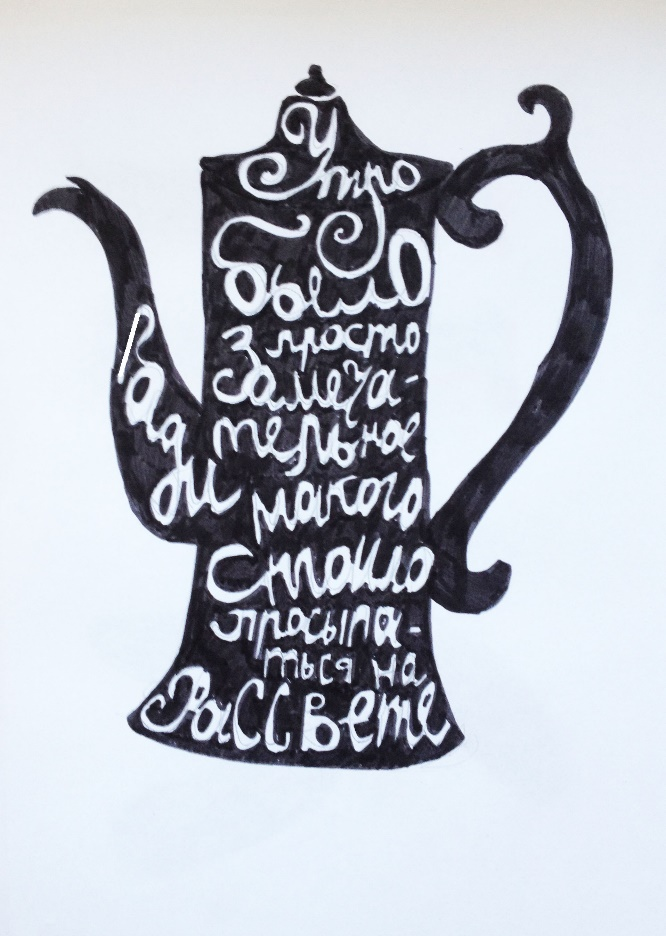 Утро
было
просто
замеча-
тельное
Ради
такого
стоило
просыпа-
ться на
Рассвете